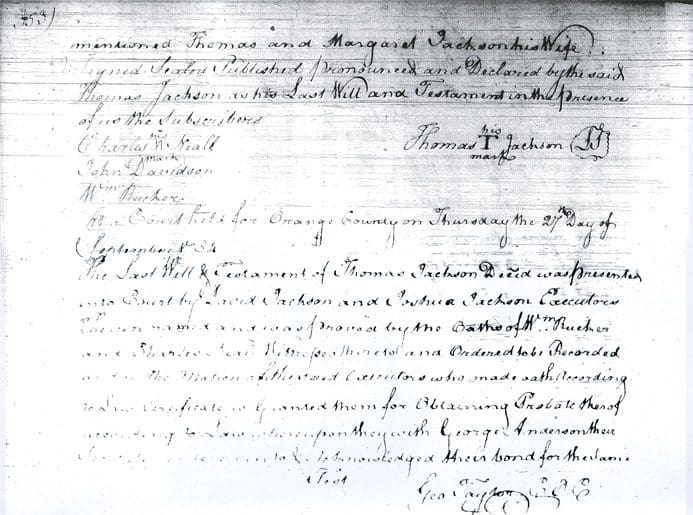 mentioned Thomas and Margaret Jackson his Wife.
Signed Sealed Published pronounced and Declared by the said
Thomas Jackson as his Last Will and Testament in the presence
of us the Subscribers
Charles his N Neall
mark
Thomas his T Jackson
mark
John Davidson
Wm Rucker
At a Court held for Orange County on Thursday the 27th Day of
September
The Last Will & Testament of Thomas Jackson Decd was presented
into Court by David Jackson and Joshua Jackson Executors
therein named and was proved by the Oaths of Wm Rucker
and Charles Witnesses thereto and Ordered to be Recorded
the Motion of the said Executors who made oath According
to Law Certificate is Granted them for Obtaining Probate thereof
according to Law whereupon they with George Anderson their
acknowledged their bond for the Same
Test
Geo Taylor